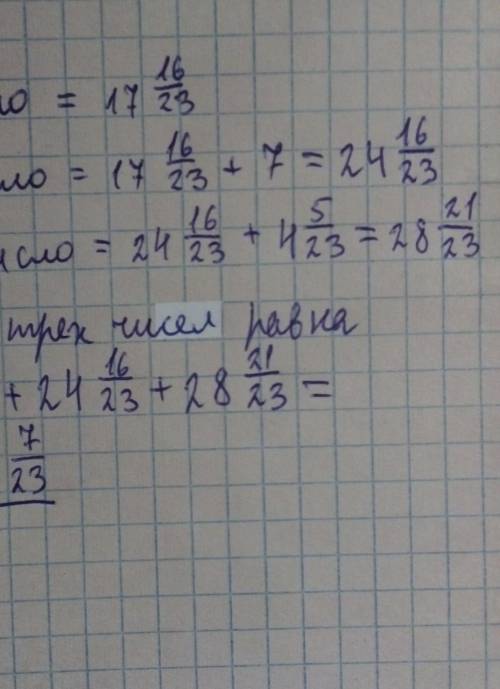 ло = 17 16/23
ло = 17 16/23 + 7 = 24 16/23
исло = 24 16/23 + 4 5/23 = 28 21/23
трех чисел равна
+ 24 16/23 + 28 21/23 =
7/23